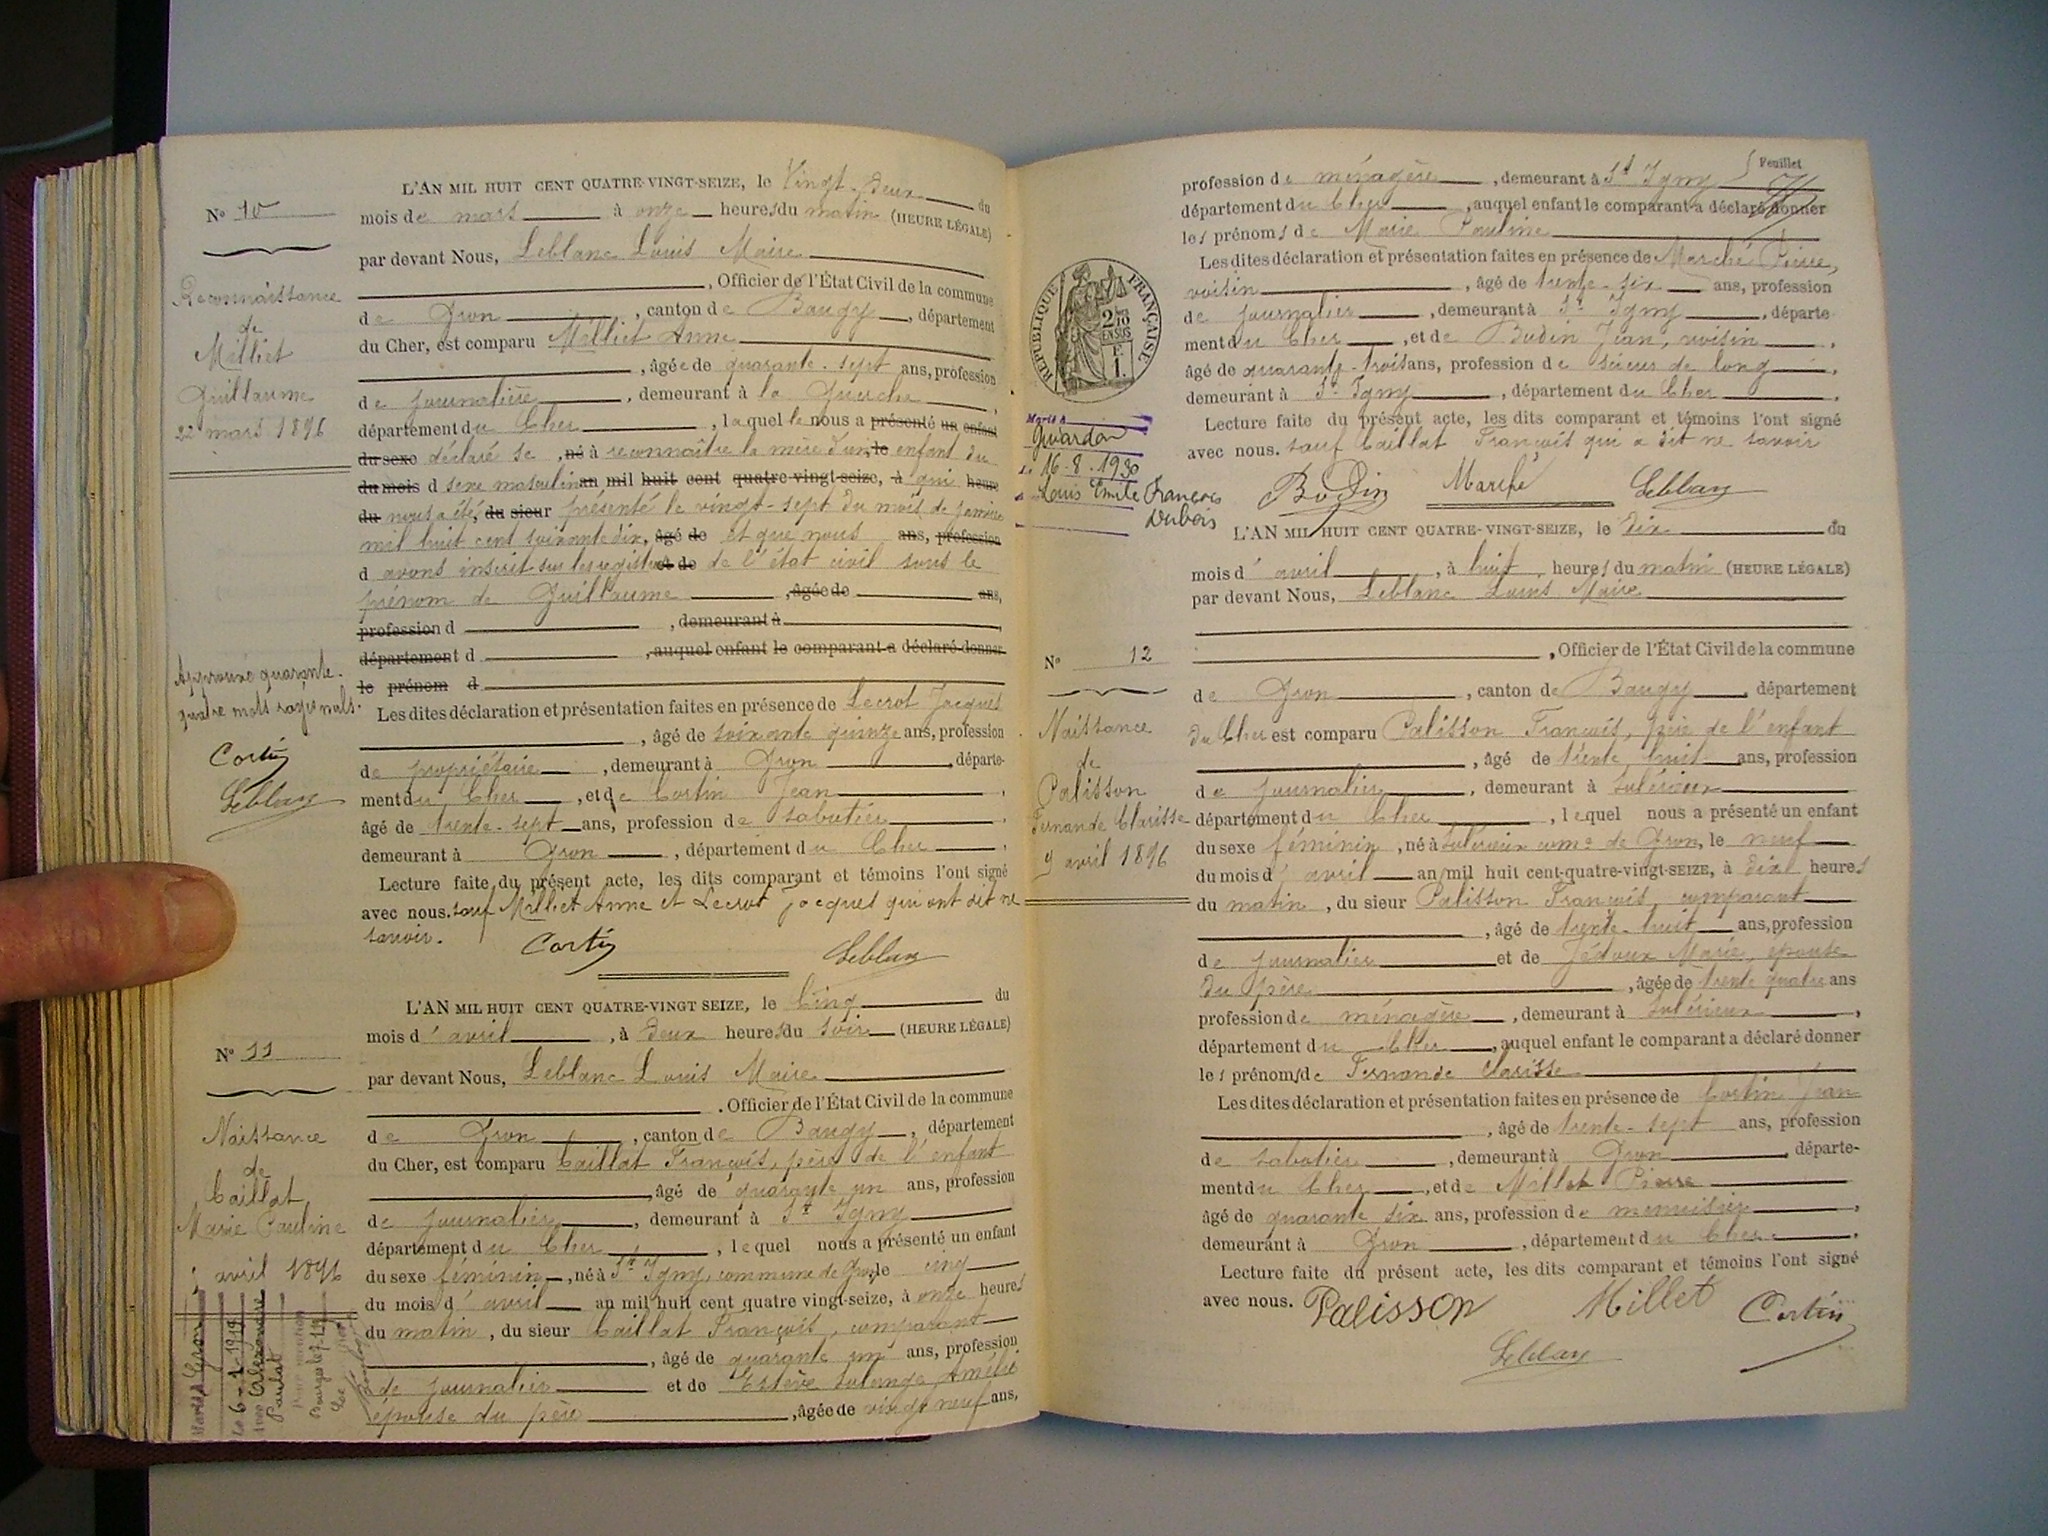 L'AN MIL HUIT CENT QUATRE-VINGT-SEIZE, le Vingt-Deux du
No 10
mois de mars à onze heures du matin (HEURE LÉGALE)
par devant Nous, Leblanc Louis Maire
, Officier de l'État Civil de la commune
Reconnaissance
de
Milliet
Guillaume
22 mars 1896
de Gron, canton de Baugy, département
du Cher, est comparu Milliet Anne
, âgée de quarante-sept ans, profession
de journalière, demeurant à la Guerche,
département du Cher, laquelle nous a présenté un enfant
du sexe déclaré se, né à reconnaître la mère d'un, le enfant du
du mois d sexe masculin an mil huit cent quatre-vingt-seize, à qui heure
du nous a été, du sieur présenté le vingt-sept du mois de janvier
mil huit cent soixante dix, âgé de et que nous ans, profession
d avons inscrit sur les registres et de de l'état civil sous le
prénom de Guillaume, âgée de ans,
profession d, demeurant à
département d, auquel enfant le comparant a déclaré donner
le prénom d
Approuvé quarante-
quatre mots rayés nuls.
Cortin
Leblanc
Les dites déclaration et présentation faites en présence de Lecrot Jacques
, âgé de soixante quinze ans, profession
de propriétaire, demeurant à Gron, départe-
ment du Cher, et de Cortin Jean,
âgé de trente-sept ans, profession de sabotier,
demeurant à Gron, département du Cher,
Lecture faite du présent acte, les dits comparant et témoins l'ont signé
avec nous. sauf Milliet Anne et Lecrot Jacques qui ont dit ne
savoir.
Cortin Leblanc
L'AN MIL HUIT CENT QUATRE-VINGT SEIZE, le Cinq du
mois d'avril, à deux heures du soir (HEURE LÉGALE)
No 11
par devant Nous, Leblanc Louis Maire
. Officier de l'État Civil de la commune
Naissance
de
Caillat
Marie Pauline
5 avril 1896
de Gron, canton de Baugy, département
du Cher, est comparu Caillat François, père de l'enfant
, âgé de quarante un ans, profession
de journalier, demeurant à St Igny
département du Cher, lequel nous a présenté un enfant
du sexe féminin, né à St Igny, commune de Gron, le cinq
du mois d'avril an mil huit cent quatre vingt-seize, à onze heures
du matin, du sieur Caillat François, comparant
, âgé de quarante un ans, profession
de journalier et de Estève Solange Amélie
épouse du père, âgée de vingt neuf ans,
le 6-1-1919
Alexandre
Paulat
Feuillet
profession de ménagère, demeurant à St Igny
département du Cher, auquel enfant le comparant a déclaré donner
les prénoms de Marie Pauline
Les dites déclaration et présentation faites en présence de Marché Pierre,
voisin, âgé de trente-six ans, profession
de journalier, demeurant à St Igny, départe-
ment du Cher, et de Bodin Jean, voisin,
âgé de quarante-trois ans, profession de scieur de long,
demeurant à St Igny, département du Cher,
Lecture faite du présent acte, les dits comparant et témoins l'ont signé
avec nous. sauf Caillat François qui a dit ne savoir
Bodin Marché Leblanc
RÉPUBLIQUE FRANÇAISE
2 10ES
EN SUS
E
1.
Marié à
Givardon
le 16-8-1930
Louis Emile François
Dubois
L'AN MIL HUIT CENT QUATRE-VINGT-SEIZE, le dix du
mois d'avril, à huit heures du matin (HEURE LÉGALE)
par devant Nous, Leblanc Louis Maire
, Officier de l'État Civil de la commune
No 12
Naissance
de
Palisson
Fernande Clarisse
9 avril 1896
de Gron, canton de Baugy, département
du Cher est comparu Palisson François, père de l'enfant
, âgé de trente huit ans, profession
de journalier, demeurant à Solérieux
département du Cher, lequel nous a présenté un enfant
du sexe féminin, né à Solérieux come de Gron, le neuf
du mois d'avril an mil huit cent-quatre-vingt-SEIZE, à dix heures
du matin, du sieur Palisson François, comparant
, âgé de trente-huit ans, profession
de journalier et de Jédoux Marie, épouse
du père, âgée de trente quatre ans
profession de ménagère, demeurant à Solérieux,
département du Cher, auquel enfant le comparant a déclaré donner
les prénoms de Fernande Clarisse
Les dites déclaration et présentation faites en présence de Cortin Jean
, âgé de trente-sept ans, profession
de sabotier, demeurant à Gron, départe-
ment du Cher, et de Millet Pierre
âgé de quarante six ans, profession de menuisier,
demeurant à Gron, département du Cher,
Lecture faite du présent acte, les dits comparant et témoins l'ont signé
avec nous. Palisson Millet Cortin
Leblanc